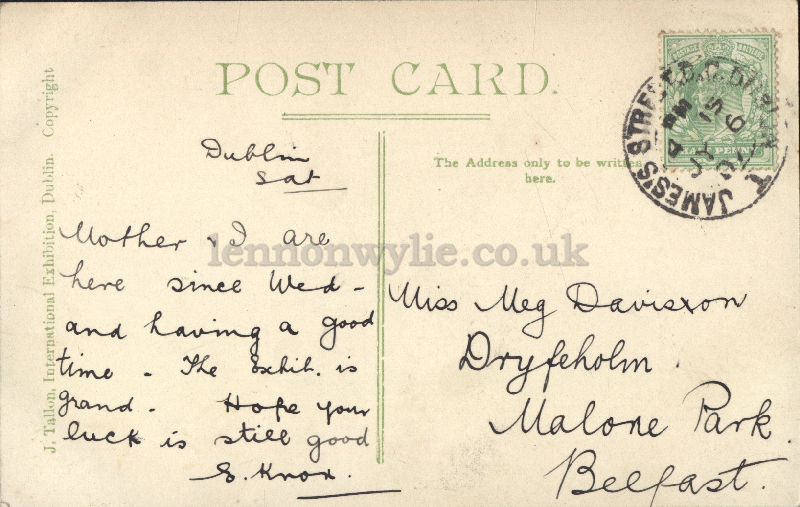 POST CARD.
The Address only to be written
here.
J. Tallon, International Exhibition, Dublin. Copyright
JAMES'S STREET B.O. DUBLIN
4 PM
JY 15
HALFPENNY
Dublin
Sat
Mother & I are
here since Wed -
and having a good
time - The Exhib. is
grand - Hope your
luck is still good
E. Knox.
Miss Meg Davisson
Dryfeholm.
Malone Park.
Belfast.
lennonwylie.co.uk